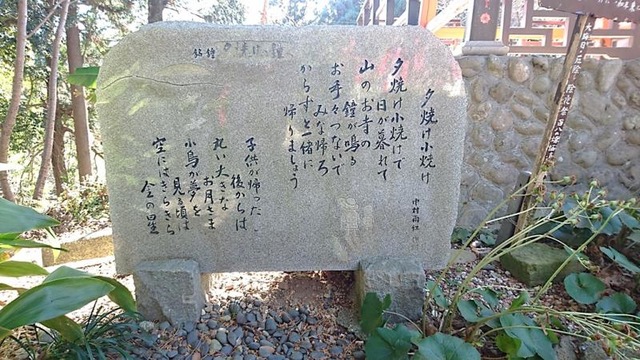 夕焼け小焼け
中村雨紅
夕焼け小焼けで
日が暮れて
山のお寺の
鐘が鳴る
お手々つないで
みな帰ろ
からすと一緒に
帰りましょう
子供が帰った
後からは
丸い大きな
お月さま
小鳥が夢を
見る頃は
空にはきらきら
金の星
夕焼け 鐘